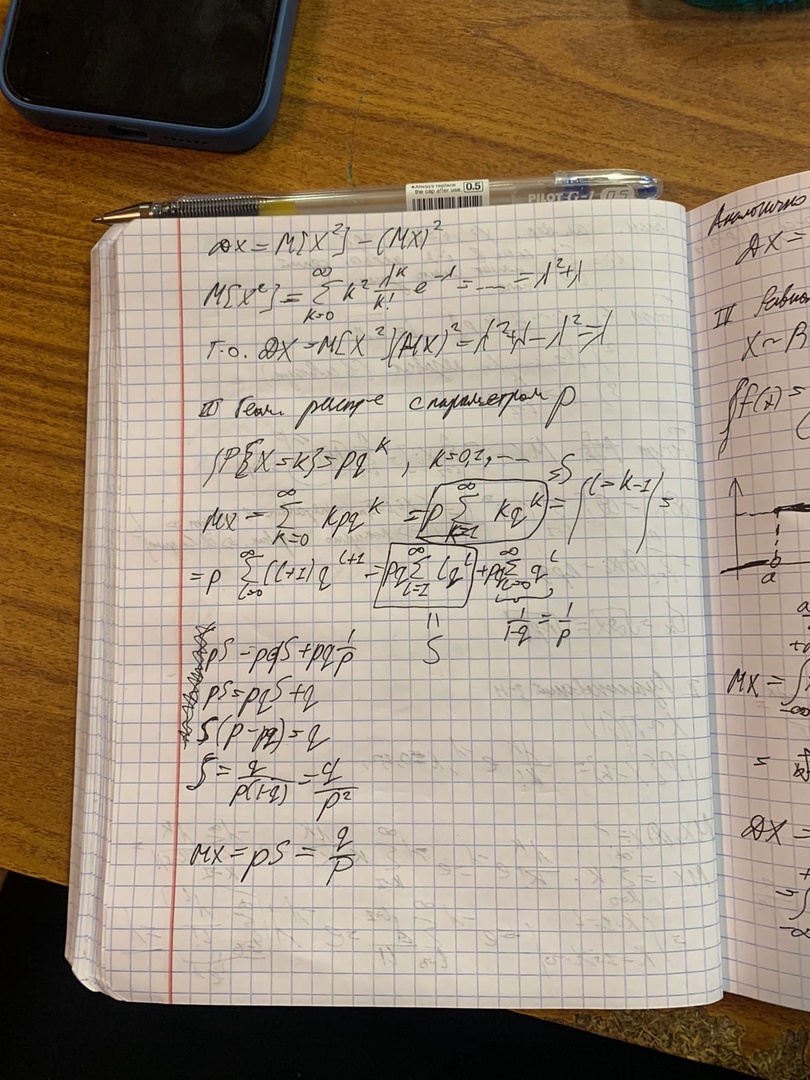 •Always replace
the cap after use.
0.5
PILOT G-1 0.5
DX = M[X²] - (MX)²
M[X²] = ∑_{k=0}^{∞} k² λ^k/k! e^{-λ} = ... = λ² + λ
т.о. DX = M[X²] (MX)² = λ² + λ - λ² = λ
III Геом распр-е с параметром p
P{X = k} = pq^k , k = 0, 1, ...
MX = ∑_{k=0}^{∞} kpq^k = p ∑_{k=1}^{∞} kq^k = | l = k-1 | =
= S
= p ∑_{l=0}^{∞} (l+1) q^{l+1} = pq ∑_{l=1}^{∞} lq^l + pq ∑_{l=0}^{∞} q^l
= S
1/(1-q) = 1/p
pS = pqS + pq 1/p
pS = pqS + q
S(p - pq) = q
S = q/(p(1-q)) = q/p²
MX = pS = q/p
Аналогично
DX =
IV Равном
X ~ R
f(x) =
a
MX =
DX =